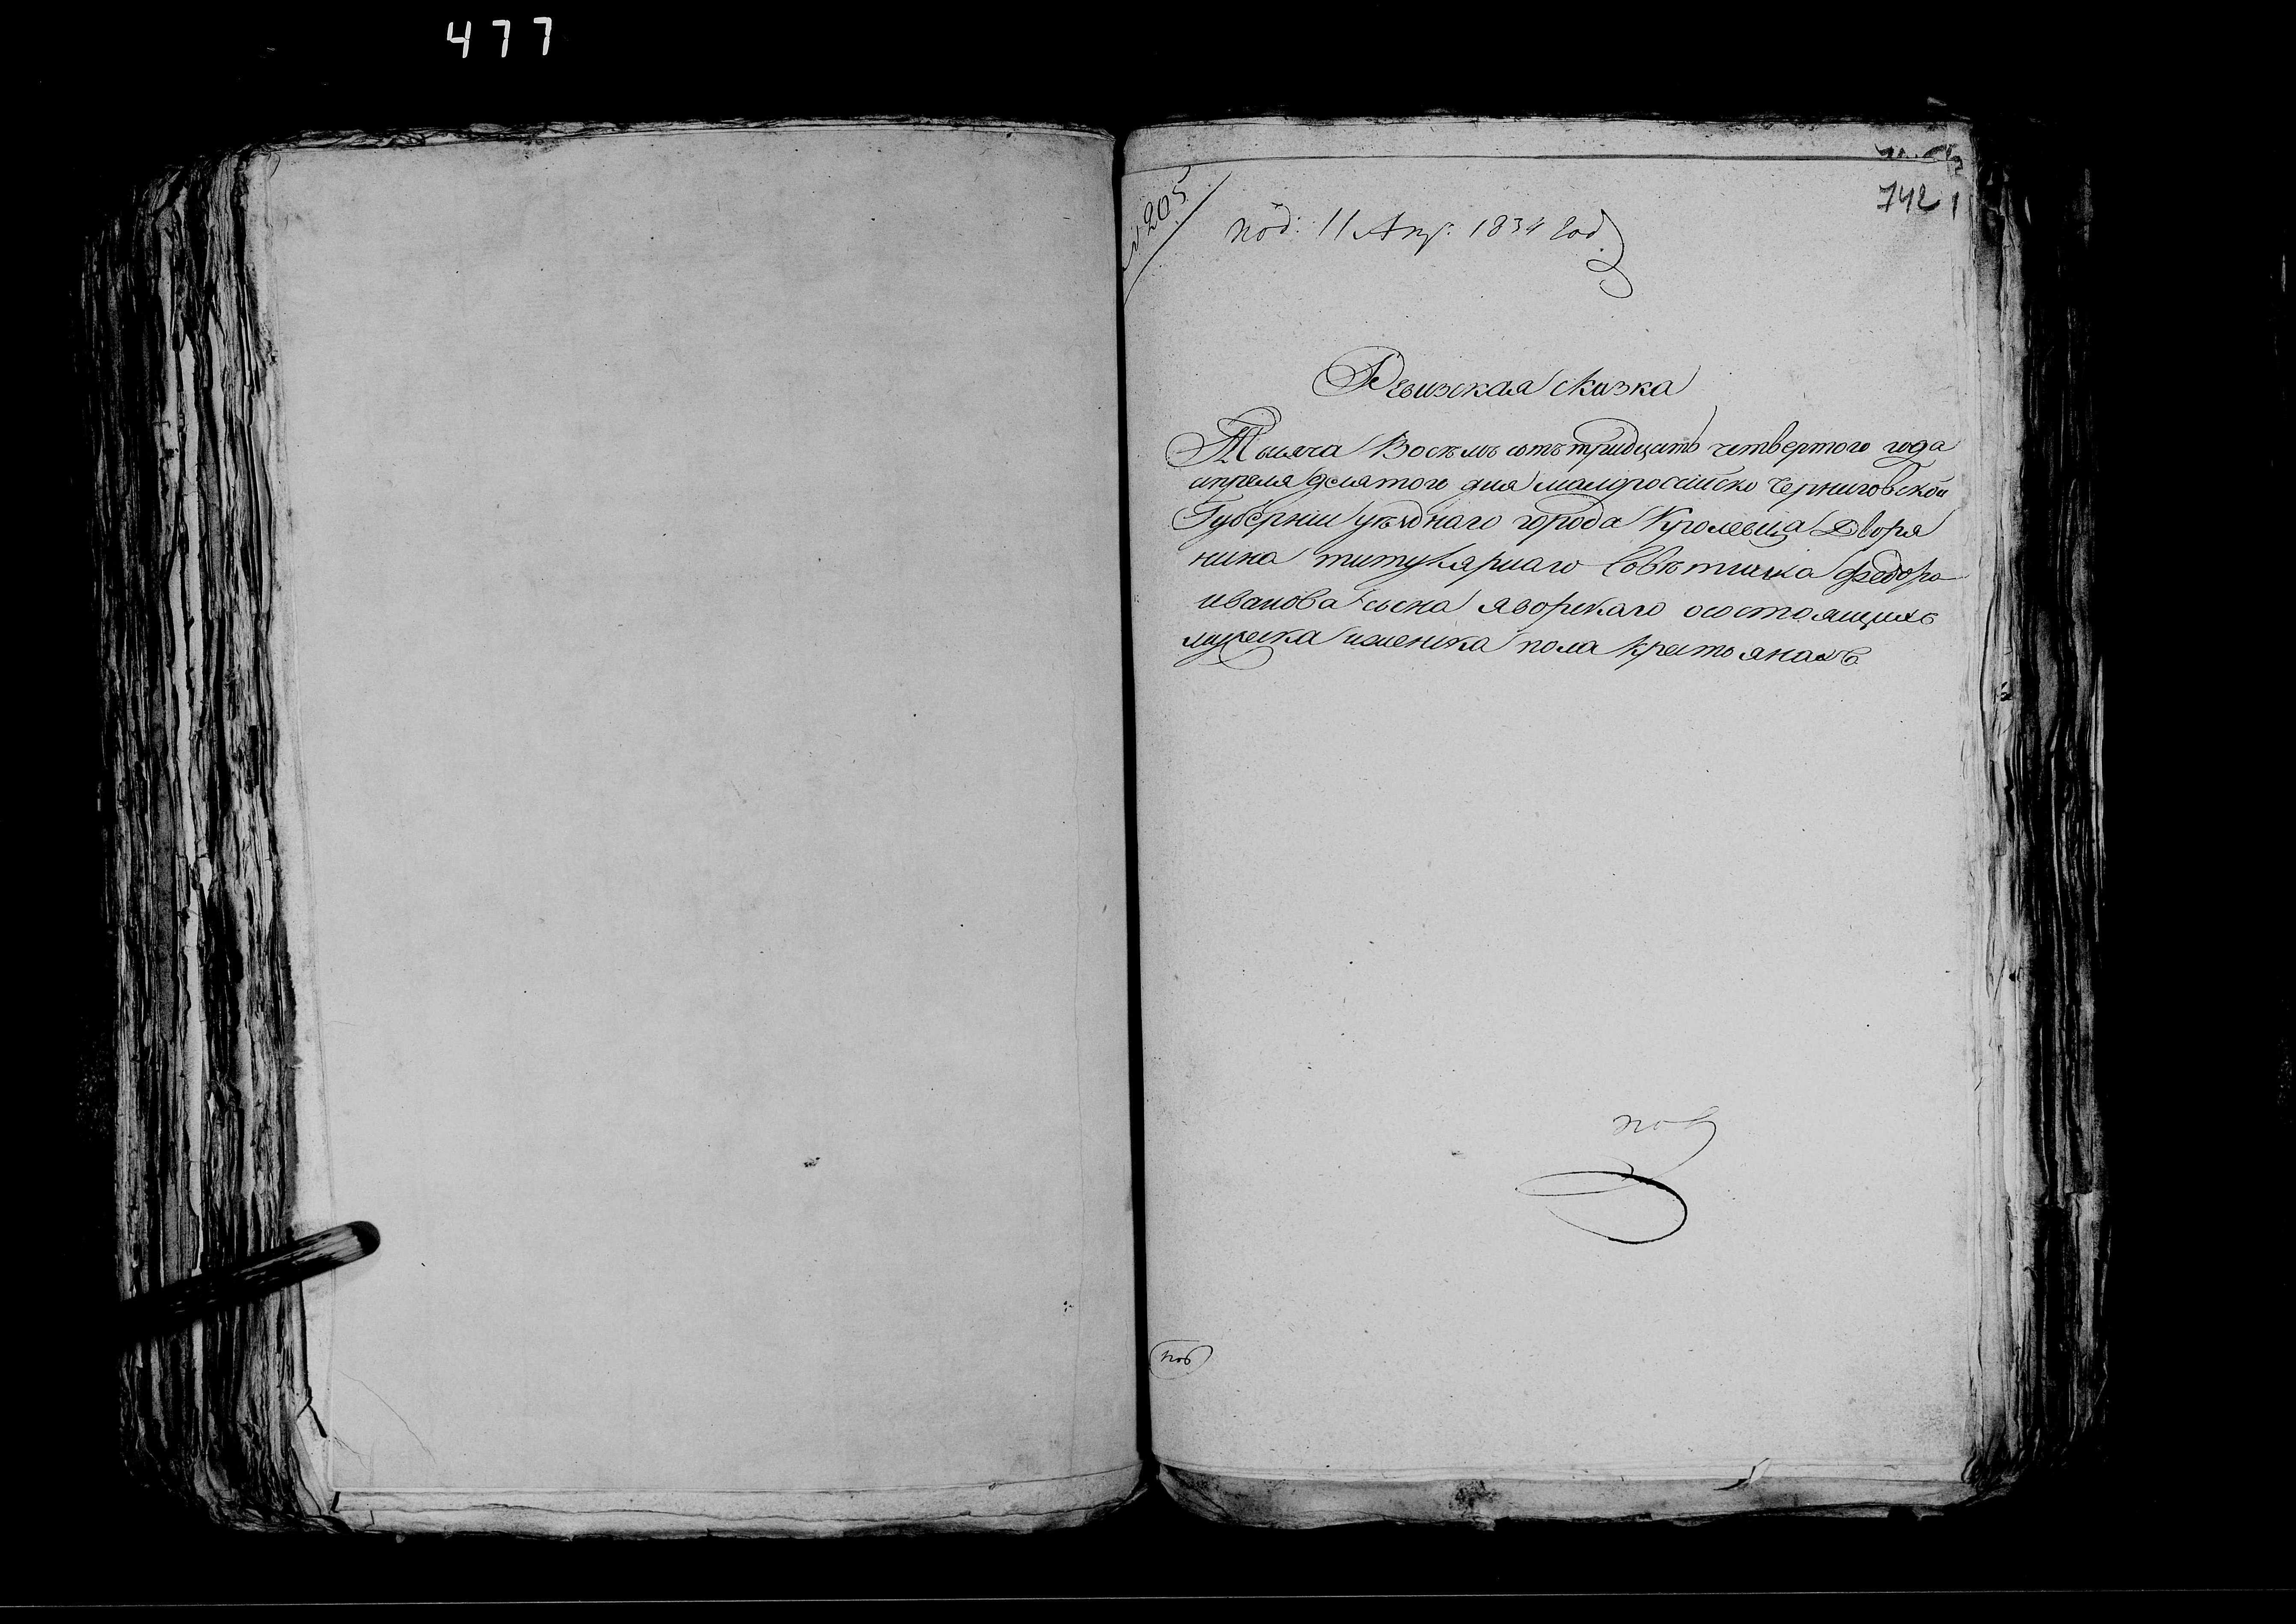 477
№ 205
742 1
под: 11 Апр: 1834 год
Ревизская сказка
Тысяча Восемь сотъ тридцать четвертого года
апреля десятого дня малоросійско Черниговской
Губерніи уѣзднаго города Кролевца Дворя
нина титулярнаго Совѣтника федора
иванова сына яворскаго осостоящихъ
мужеска иженска пола крестьянахъ